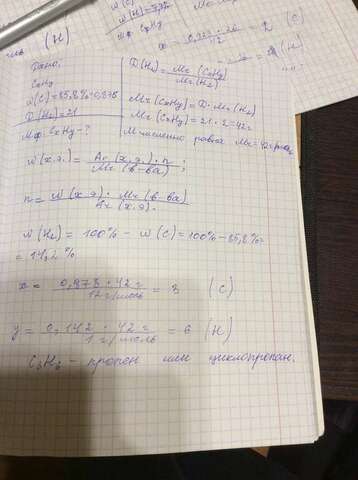 (H)
Дано:
CxHy
W(C) = 85,8% = 0,875
D(H₂) = 21
Мф. CxHy - ?
D(H₂) = Mr(CxHy) / Mr(H₂)
Mr(CxHy) = D · Mr(H₂)
Mr(CxHy) = 21 · 2 = 42
M численно равна Mr = 42
W(х.э.) = Ar(х.э.) · n / Mr(в-ва) ;
n = W(х.э) · Mr(в-ва) / Ar(х.э).
W(H₂) = 100% - W(C) = 100% - 85,8% =
= 14,2%
x = 0,878 · 42 г / 12 г/моль = 3 (C)
y = 0,142 · 42 г / 1 г/моль = 6 (H)
C₃H₆ - пропен или циклопропан.